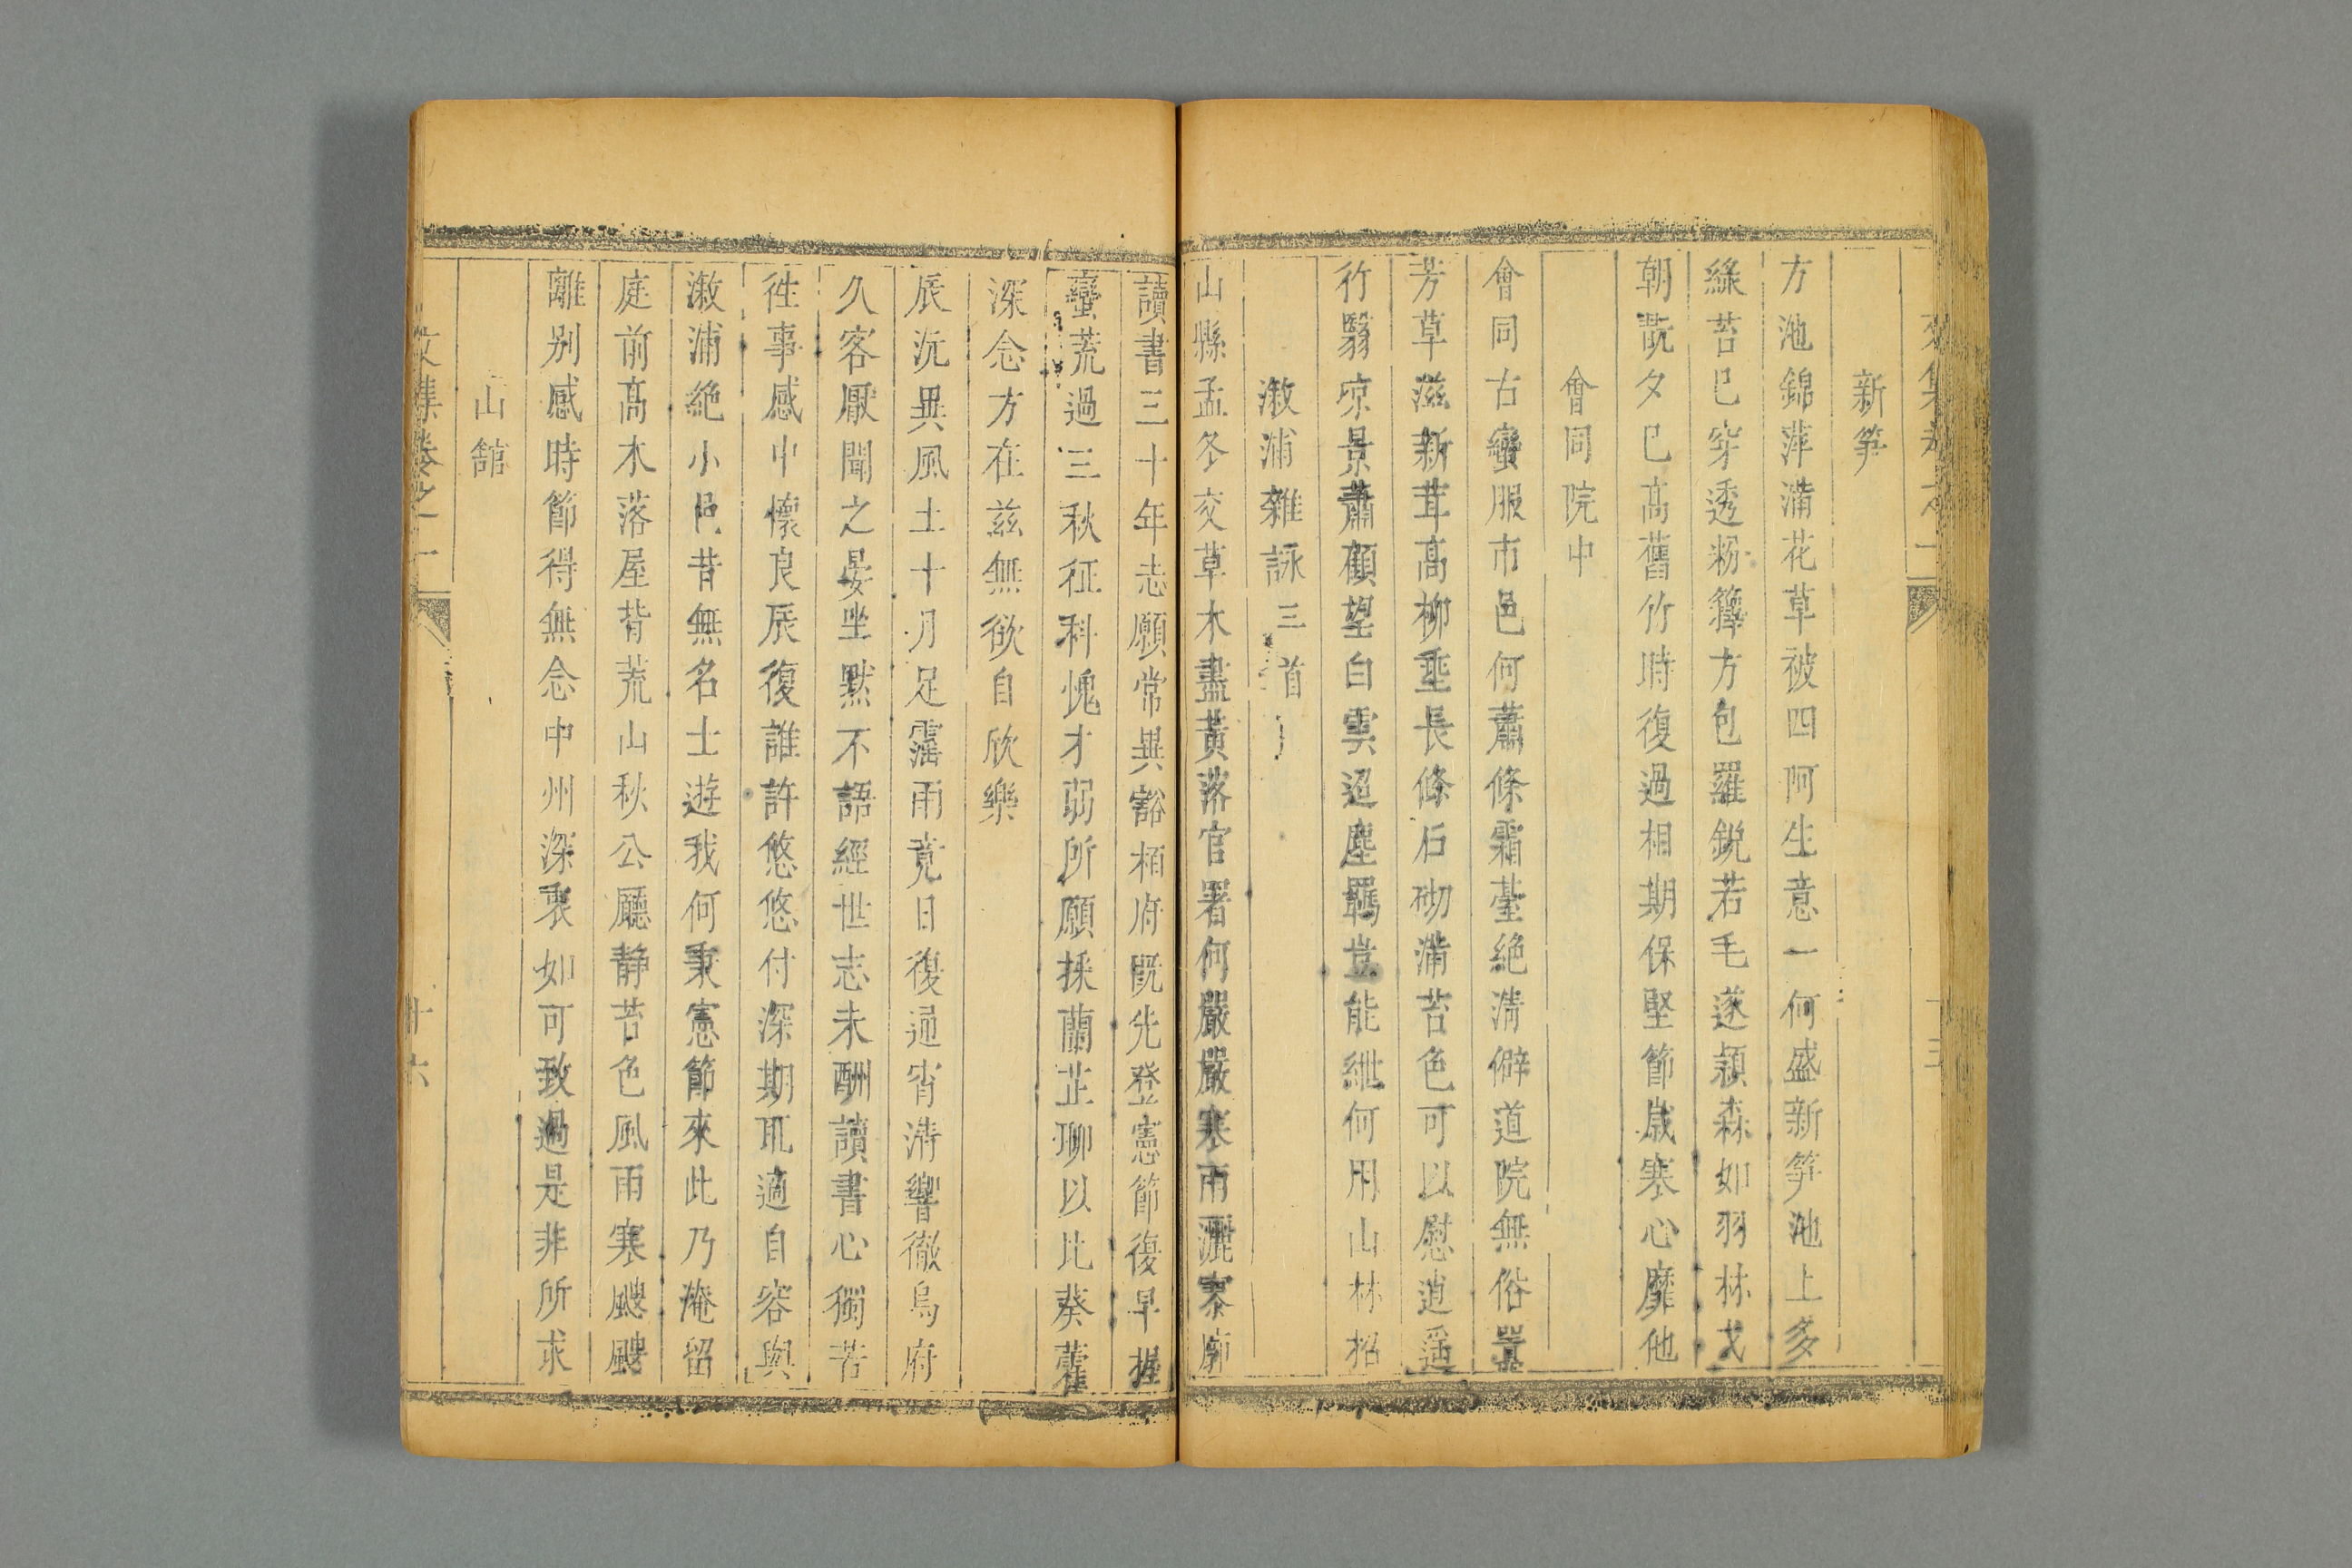 新笋
方池錦萍滿花草被四阿生意一何盛新笋池上多
綠苔已穿透粉籜方包羅銳若毛遂穎森如羽林戈
朝翫夕已高舊竹時復過相期保堅節歲寒心靡他
會同院中
會同古蠻服市邑何蕭條霜臺絶清僻道院無俗囂
芳草滋新茸高柳垂長條石砌滿苔色可以慰逍遥
行翳凉景蕭顧望白雲迢塵羈豈能紲何用山林招
溆浦雜詠三首
山縣孟冬交草木盡黃落官署何嚴嚴寒雨灑寥廓
讀書三十年志願常異豁栢府既先登憲節復早握
蠻荒過三秋征科愧才弱所願採蘭芷聊以比葵藿
深念方在兹無欲自欣樂
辰沅異風土十月足霪雨竟日復通宵清響徹烏府
久客厭聞之晏坐默不語經世志未酬讀書心獨苦
徃事感中懷良辰復誰許悠悠付深期聊適自容與
溆浦絶小邑昔無名士遊我何秉憲節來此乃淹留
庭前高木落屋背荒山秋公廳靜苔色風雨寒颼颼
離別感時節得無念中州深衷如可致過是非所求
山館
文集卷之一
十六